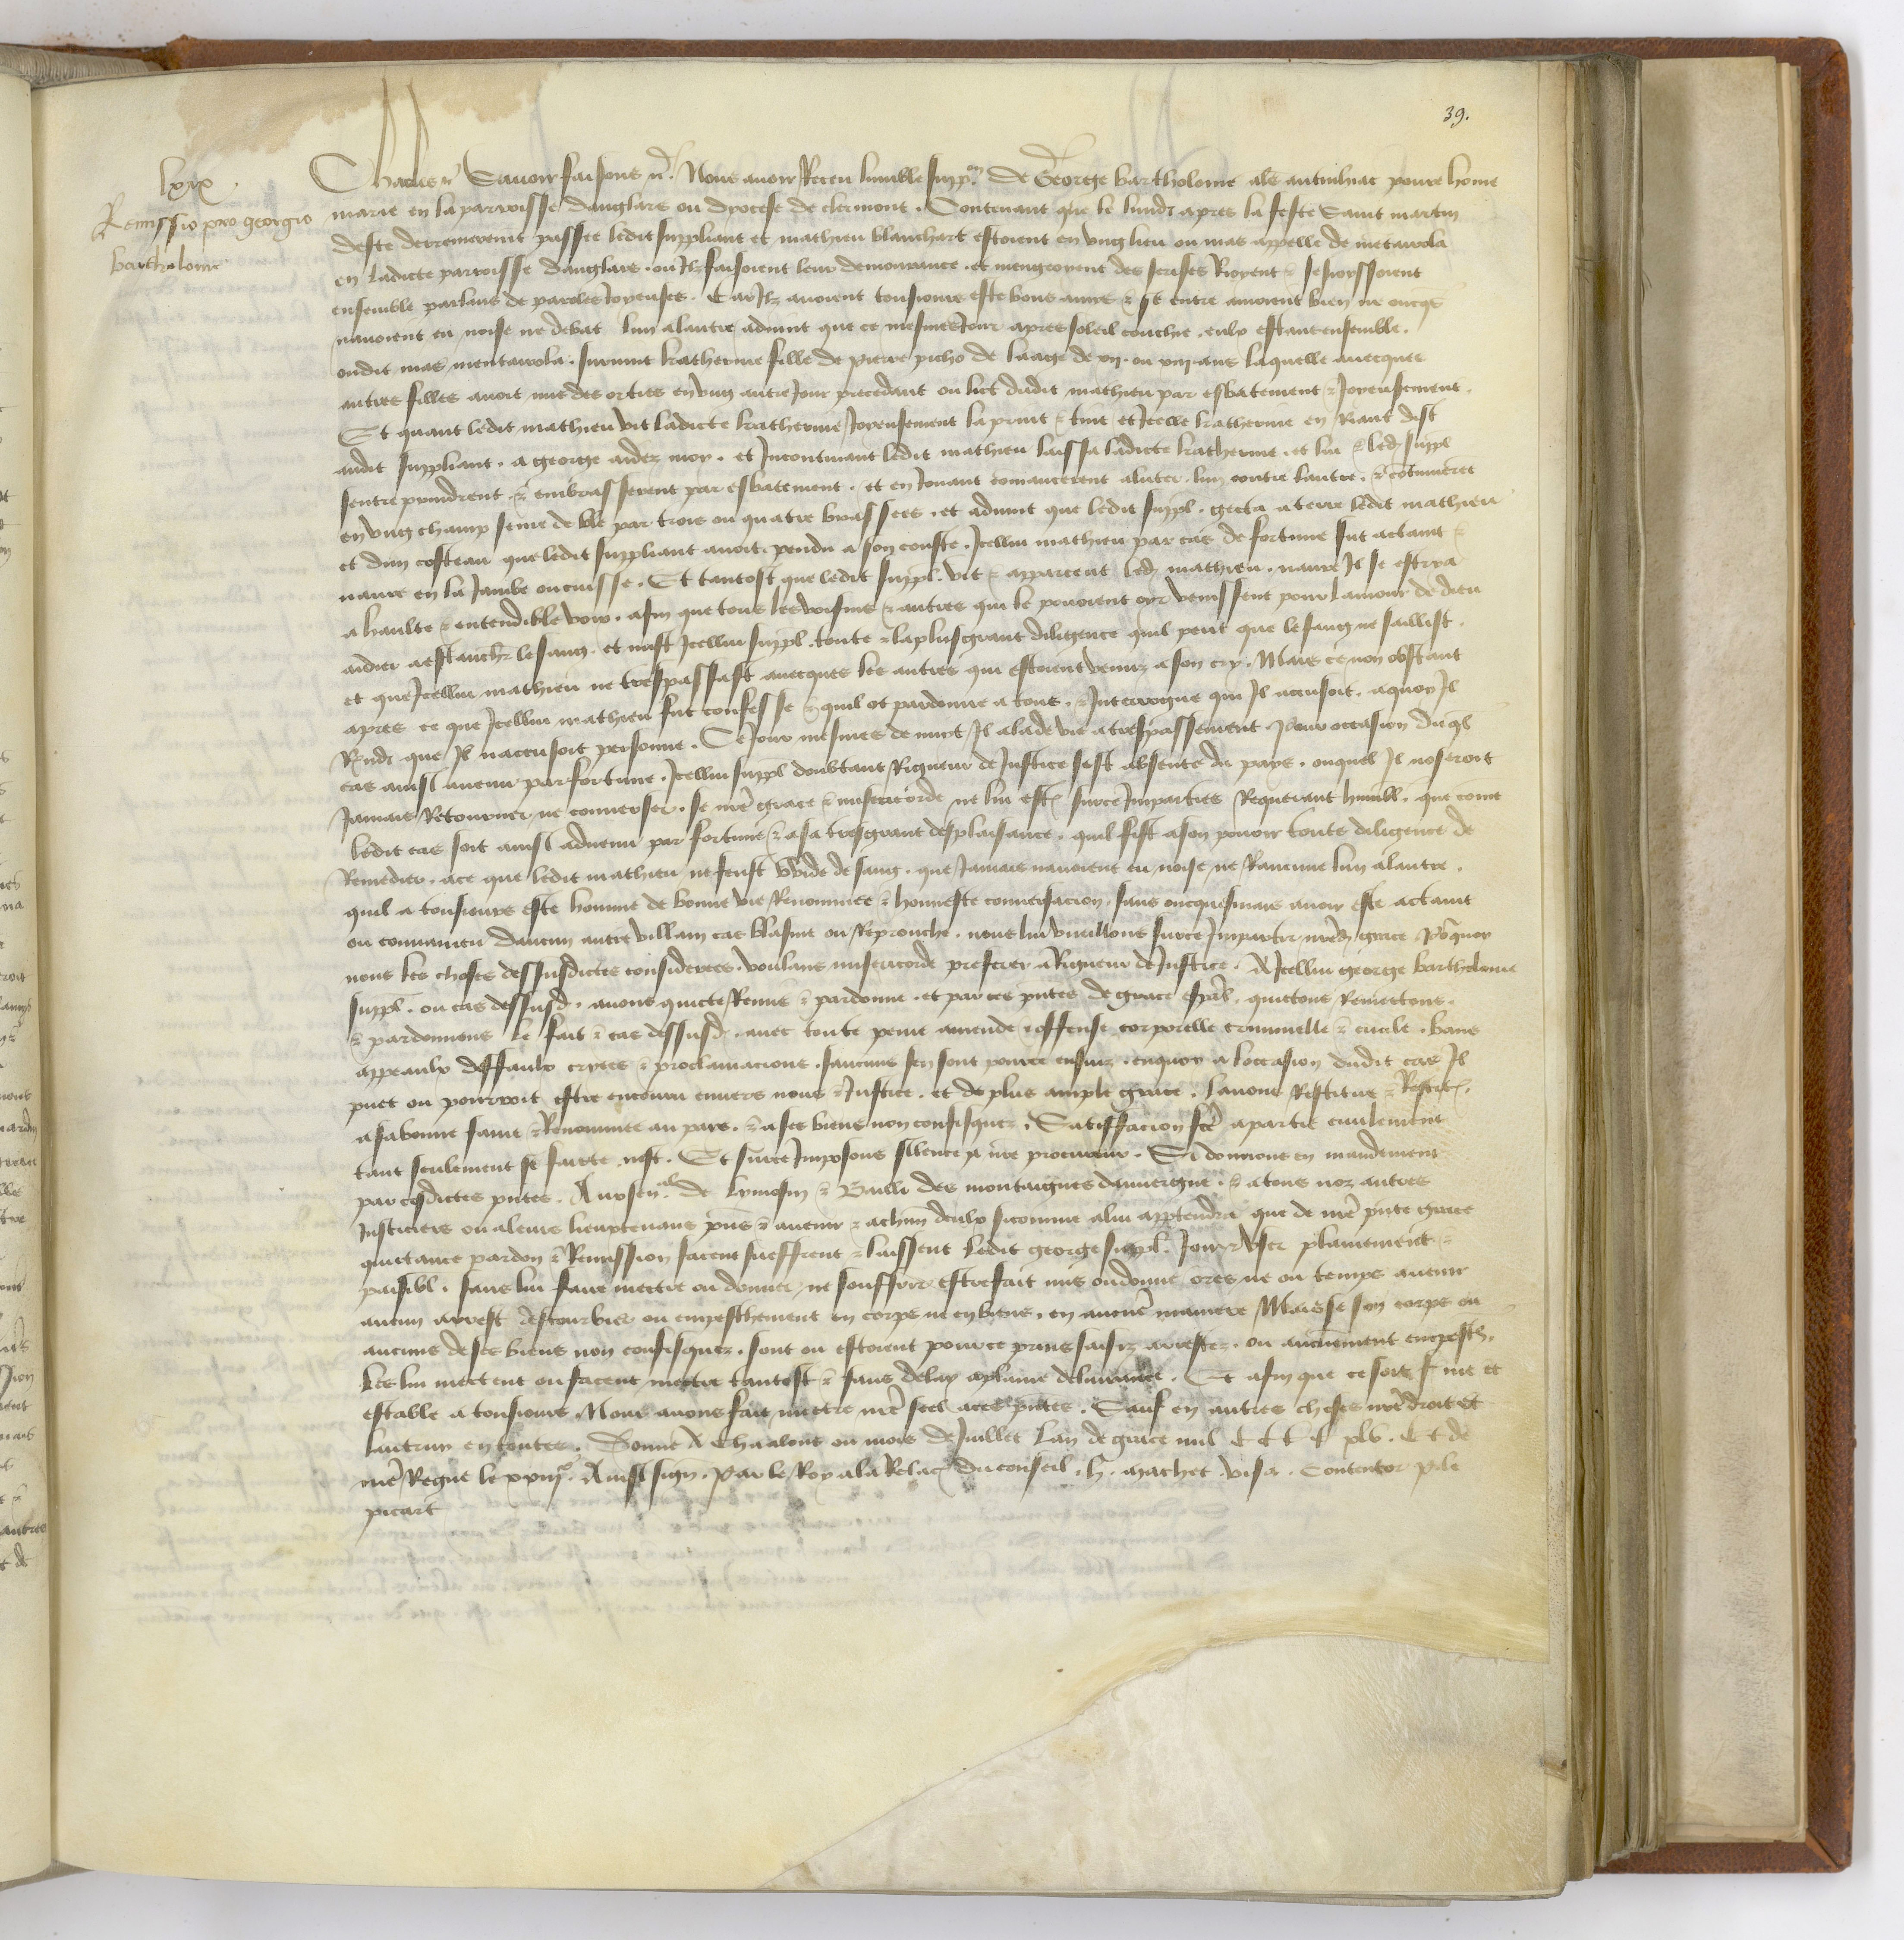 39.
lxix
Remissio pro georgio
bartholome
Charles etc. Savoir faisons etc. Nous avoir Receu lumble supplon. de George bartholome als antinhac povre home
marie en la parroisse danglars ou dyocese de clermont. Contenant que le lundi apres la feste Saint martin
deste derrenierement passee ledit suppliant et mathieu blanchart estoient en ung lieu ou mas appelle de mentarola
en ladicte parroisse danglars. ou Ilz faisoient leur demourance. et mengeoyent des serises Rioyent et sesioyssoient
ensemble parlans de paroles Joyeuses. Car Ilz avoient tousiours este bons amis et sentre amoient bien ne oncqs
navoient eu noise ne debat lun a lautre advint que ce mesmes Jour apres soleil couche. eulx estant ensemble.
oudit mas mentarola. survint katherine fille de pierre picho de laage de xij. ou xiij. ans laquelle avecques
autres filles avoit mis des orties en ung autre Jour precedant ou lict dudit mathieu par esbatement et Joyeusement.
Et quant ledit mathieu vit ladicte katherine Joyeusement la print et tint et Icelle katherine en Riant dist
audit suppliant. a george aidez moy. et Incontinant ledit mathieu laissa ladicte katherine. et lui et led. suppl
sentreprindrent. et embrasserent par esbatement. et en Jouant comancerent a luter lun contre lautre. et continuerent
en ung champ seme de ble par trois ou quatre brassees. et advint que ledit suppl. gecta a terre ledit mathieu
et dun costeau que ledit suppliant avoit pendu a son couste. Icellui mathieu par cas de fortune fut actaint et
navre en la Jambe ou cuisse. Et tantost que ledit suppl. vit et apparceut led. mathieu. navre Il se escrya
a haulte et entendible voix. afin que tous les voisins et autres qui le povoient oyr venissent pour lamour de dieu
aidier a estancher le sang. et mist Icellui suppl. toute et la plus grant diligence quil peut que le sang ne saillist.
et que Icellui mathieu ne trespassast avecques les autres qui estoient venuz a son cry. Mais ce non obstant
apres ce que Icellui mathieu fut confesse et quil ot pardonne a tous. et Interrogue qui Il accusoit. a quoy Il
Rndi que Il naccusoit personne. Ce Jour mesmes de nuyt Il ala de vie a trespassement. Pour occasion duql
cas ainsi avenu par fortune. Icellui suppl doubtant Rigueur de Justice sest absente du pays. ouquel Il noseroit
Jamais Retourner, ne converser. se nre grace et misericorde ne lui est sur ce Impartie Requerant humbl. que come
ledit cas soit ainsi advenu par fortune et a sa tresgrant desplaisance. quil fist a son povoir toute diligence de
Remedier. a ce que ledit mathieu ne feust vuide de sang. que Jamais navoient eu noise ne Rancune lun a lautre.
quil a tousiours este homme de bonne vie Renommee et honneste conversacion, sans oncquesmais avoir este actaint
ou convaincu daucun autre villain cas blasme ou Reprouche. nous lui vueillons sur ce Impartir nred. grace Pourquoy
nous les choses dessusdictes considerees. voulans misericorde preferer a Rigueur de Justice. A Icellui george bartholome
suppl. ou cas dessusd. avons quicte Remis et pardonne. et par ces pntes de grace espal. quictons Remettons.
et pardonnons le fait et cas dessusd. avec toute peine amende et offense corporelle criminelle et civile. bans
appeaulx deffaulx cryees et proclamacions. saucuns sen sont pource ensuiz. enquoy a loccasion dudit cas Il
puet ou pourroit estre encouru envers nous et Justice. et de plus ample grace. lavons Restitue et Restit.
a sa bonne fame et Renommee au pays. et a ses biens non confisquez. Satisfacion fce a partie civilement
tant seulement se faicte nest. Et sur ce Imposons silence a nre procureur. Si donnons en mandement
par cesdictes pntes. Aux sen.al de lymosin et Bailli des montaignes dauvergne. et a tous noz autres
Justiciers ou a leurs lieuxtenans pns et avenir et a chun deulx sicomme a lui apptendra que de nre pnte grace
quictance pardon et Remission facent sueffrent et laissent ledit george suppl. Joir et user plainement et
paisibl. sans lui faire mectre ou donner, ne souffrir estre fait mis ou donne ores ne ou temps avenir
aucun arrest destourbier ou empeschement en corps ne en biens. en aucune maniere Mais se son corps ou
aucuns de ses biens non confisquez. sont ou estoient pource prins saisiz arrestez. ou aucunement empesch.
les lui mectent ou facent mectre tantost et sans delay a plaine delivrance. Et afin que ce soit ferme et
estable a tousiours. Nous avons fait mectre nre scel a ces pntes. Sauf en autres choses nre droit et
lautruy en toutes. Donne A Chaalons ou mois de Juillet Lan de grace mil CCCC xlv. Et de
nre Regne le xxiije. Ainsi sign. Par le Roy a la Relac. du conseil. h. machet. visa. Contentor p. le
picart